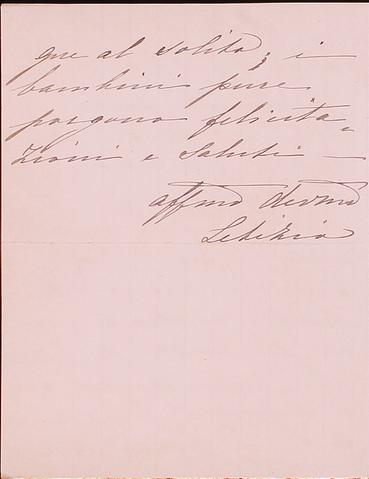 que al solito; i
bambini pure
porgono felicita=
zioni e saluti —
affma
Letizia